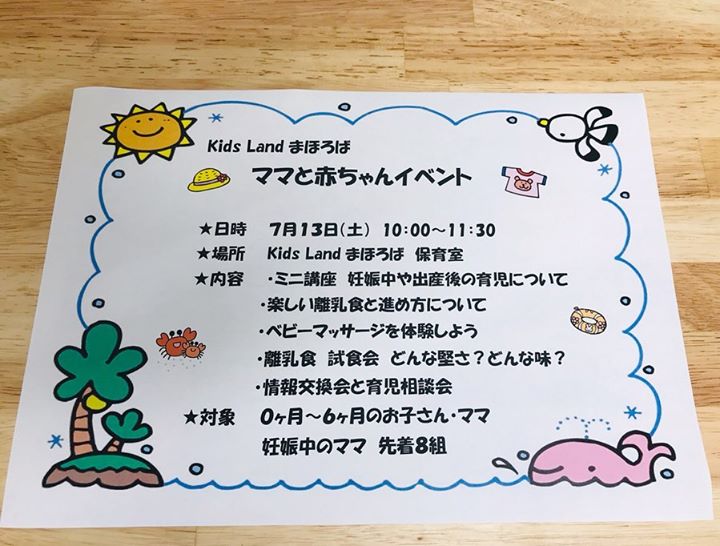 Kids Land まほろば
ママと赤ちゃんイベント
★日時 7月13日(土) 10:00～11:30
★場所 Kids Land まほろば 保育室
★内容 ・ミニ講座 妊娠中や出産後の育児について
・楽しい離乳食と進め方について
・ベビーマッサージを体験しよう
・離乳食 試食会 どんな堅さ？どんな味？
・情報交換会と育児相談会
★対象 0ヶ月～6ヶ月のお子さん・ママ
妊娠中のママ 先着8組